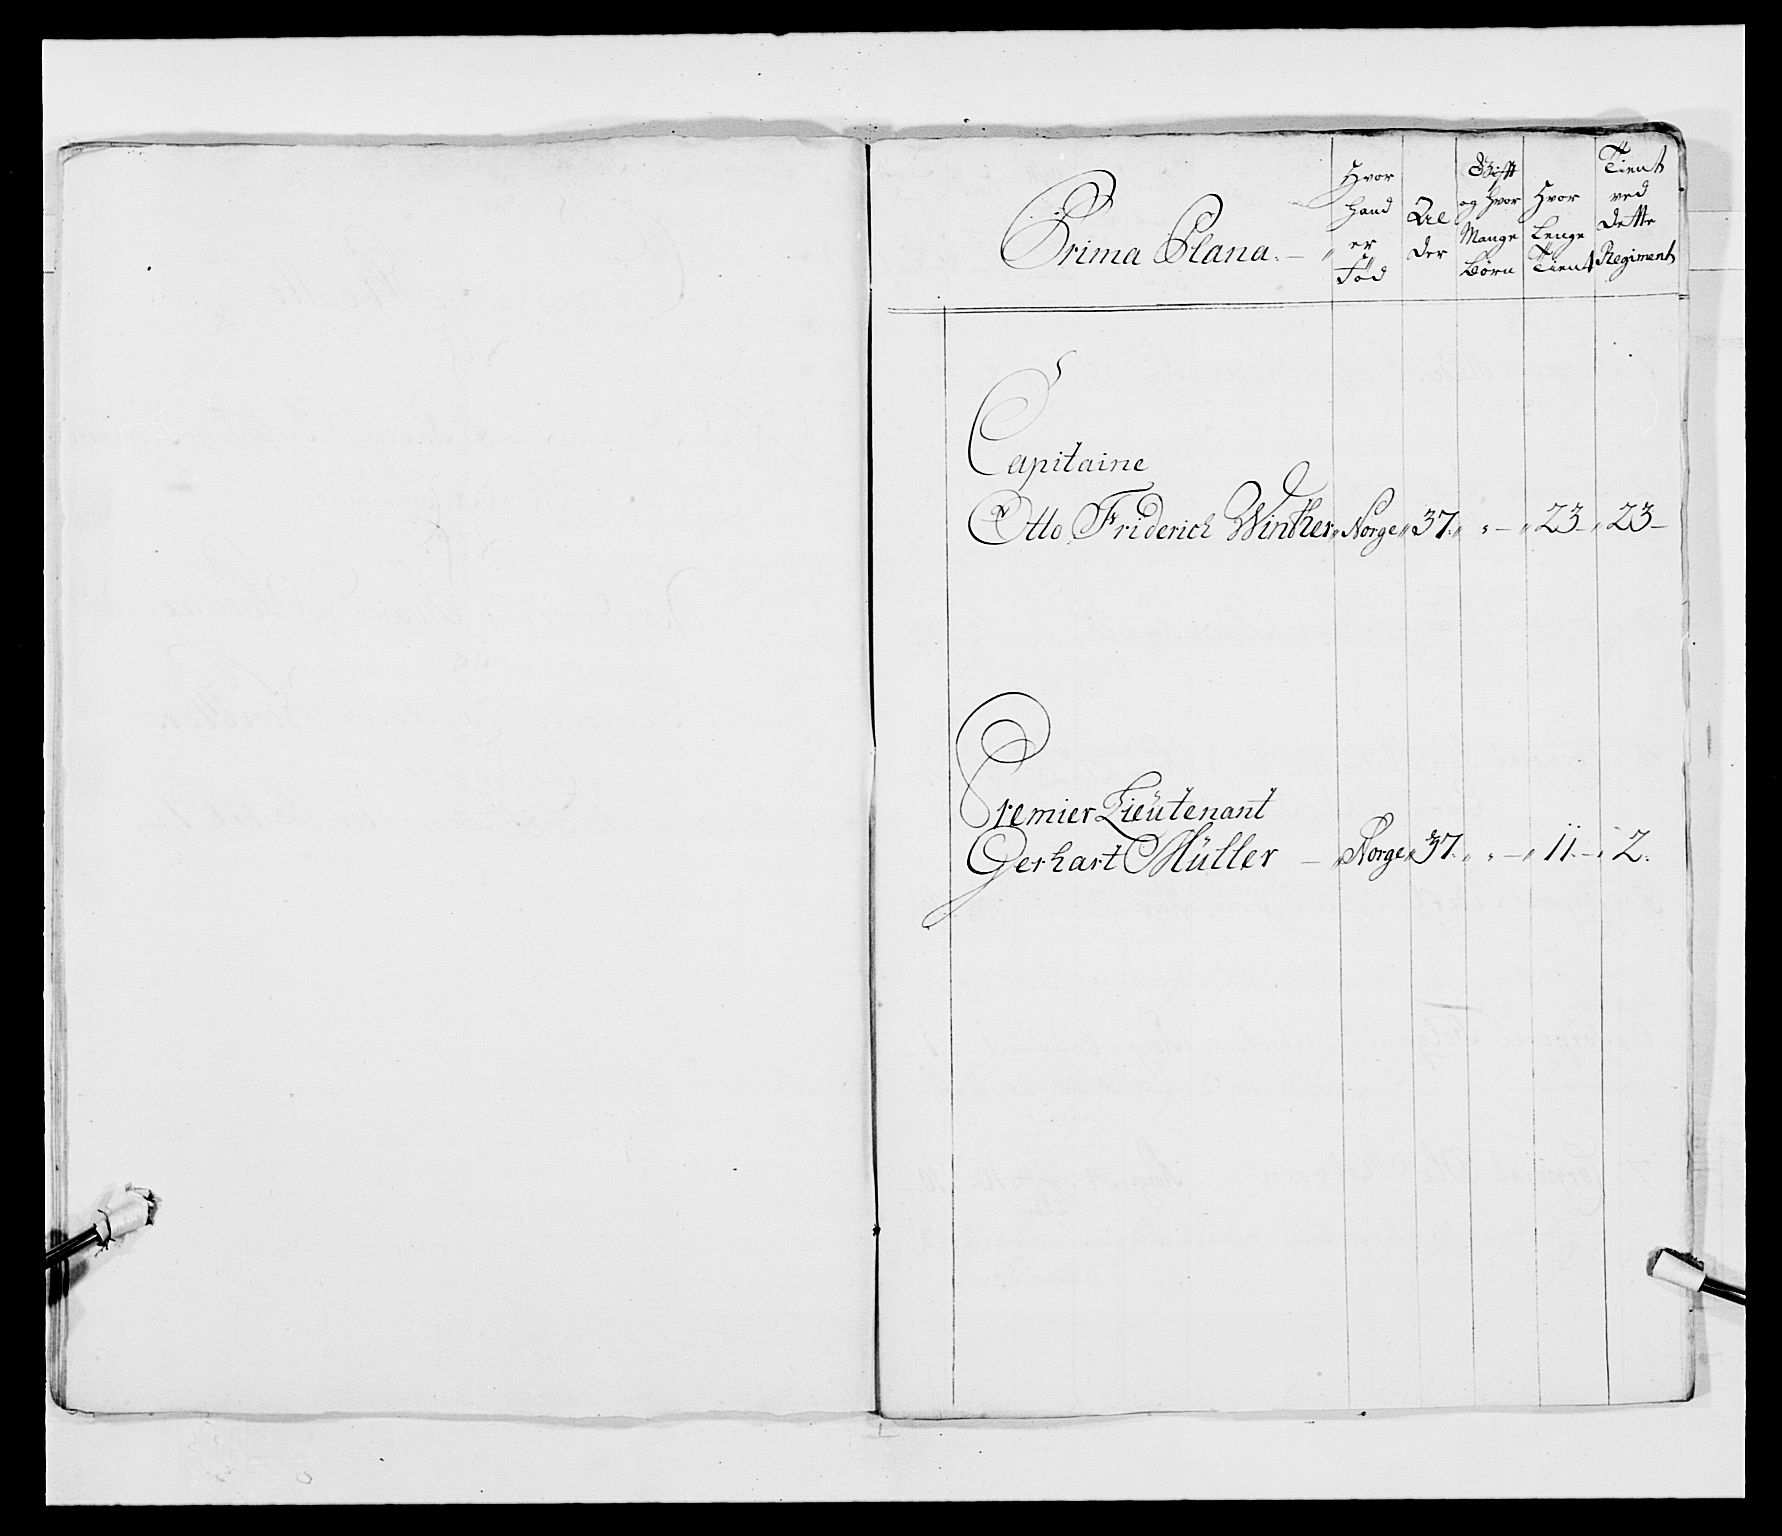 Prima Plana. — „
Hvor
hand
er
Fød
Al
der
Gift
og Hvor
Mange
Börn
Hvor
Lenge
Tient
Tient
ved
dette
Regiment
Capitaine
Otto Friderich Winther „ Norge „ 37. „ „ — „ 23 — „ 23 —
Premier Lieutenant
Gerhart Müller — „ Norge „ 37. „ „ — „ 11. — „ 2.